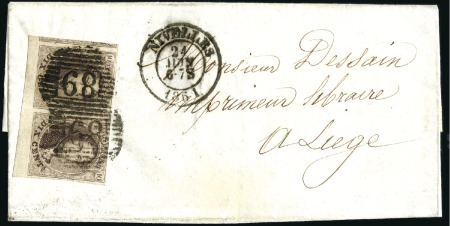 NIVELLES
21
JUIN
6-7S
1851
68
Monsieur Dessain
Imprimeur libraire
a Liege